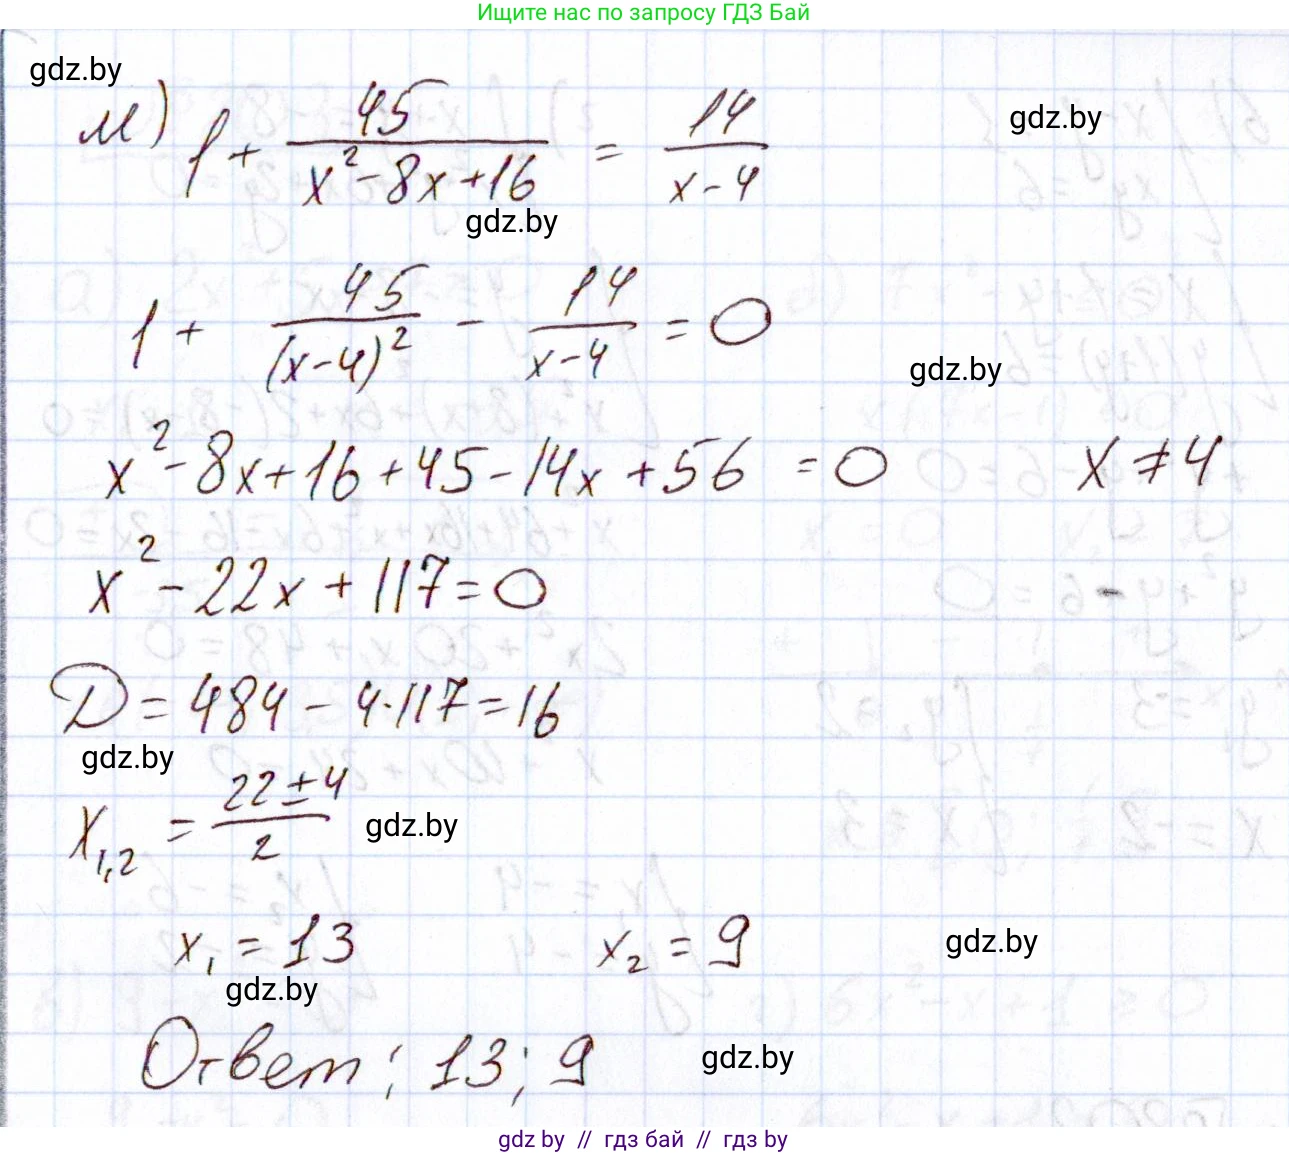 Ищите нас по запросу ГДЗ Бай
gdz.by
м) 1 + 45/(x² - 8x + 16) = 14/(x - 4)
gdz.by
gdz.by
1 + 45/(x - 4)² - 14/(x - 4) = 0
gdz.by
x² - 8x + 16 + 45 - 14x + 56 = 0 x ≠ 4
x² - 22x + 117 = 0
D = 484 - 4·117 = 16
gdz.by
x₁,₂ = (22 ± 4)/2
gdz.by
x₁ = 13 x₂ = 9
gdz.by
gdz.by
Ответ: 13; 9
gdz.by
gdz by // гдз бай // гдз by